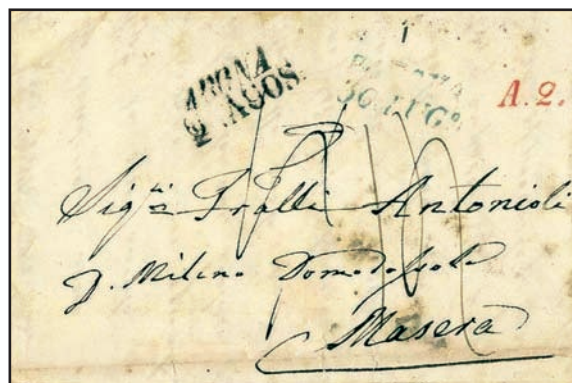 ARONA
2 AGOS.
30 LUG°
A.2.
Sig.ri Fralli Antonioli
p. Milano Domodossola
Masera